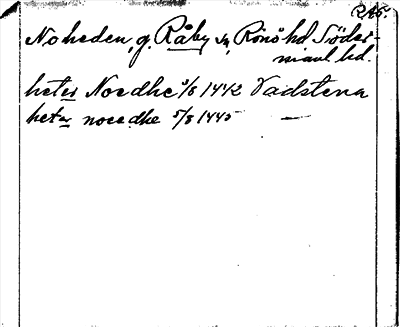 RAp.
Noheden, g. Råby sn, Rönö hd Söder-
manl. hd.
heter Noedhe 5/8 1442 Vadstena
heter noeedhe 5/8 1445 —